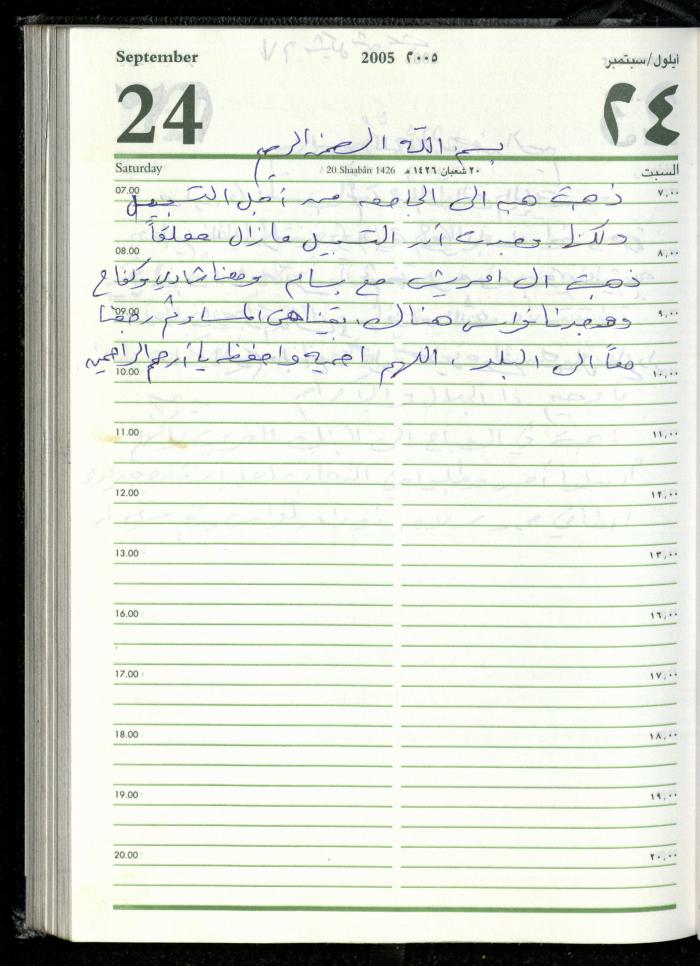 September 2005 ٢٠٠٥ أيلول/سبتمبر
24 ٢٤
بسم الله الرحمن الرحيم
Saturday 20 Shaabân 1426 ٢٠ شعبان ١٤٢٦ هـ السبت
07.00 ٧,٠٠
ذهبت هب الى الجامعه من أجل التسجيل
ولكنها وجدت أن التسجيل مازال معلقاً
08.00 ٨,٠٠
ذهبت الى مع بسام ومعنا شادي وكفاح
09.00 ٩,٠٠
ووجدنا فراس هناك، بقينا هى المساء ثم رجعنا
معاً الى البلد، اللهم احميه واحفظه يا أرحم الراحمين
10.00 ١٠,٠٠
11.00 ١١,٠٠
12.00 ١٢,٠٠
13.00 ١٣,٠٠
16.00 ١٦,٠٠
17.00 ١٧,٠٠
18.00 ١٨,٠٠
19.00 ١٩,٠٠
20.00 ٢٠,٠٠